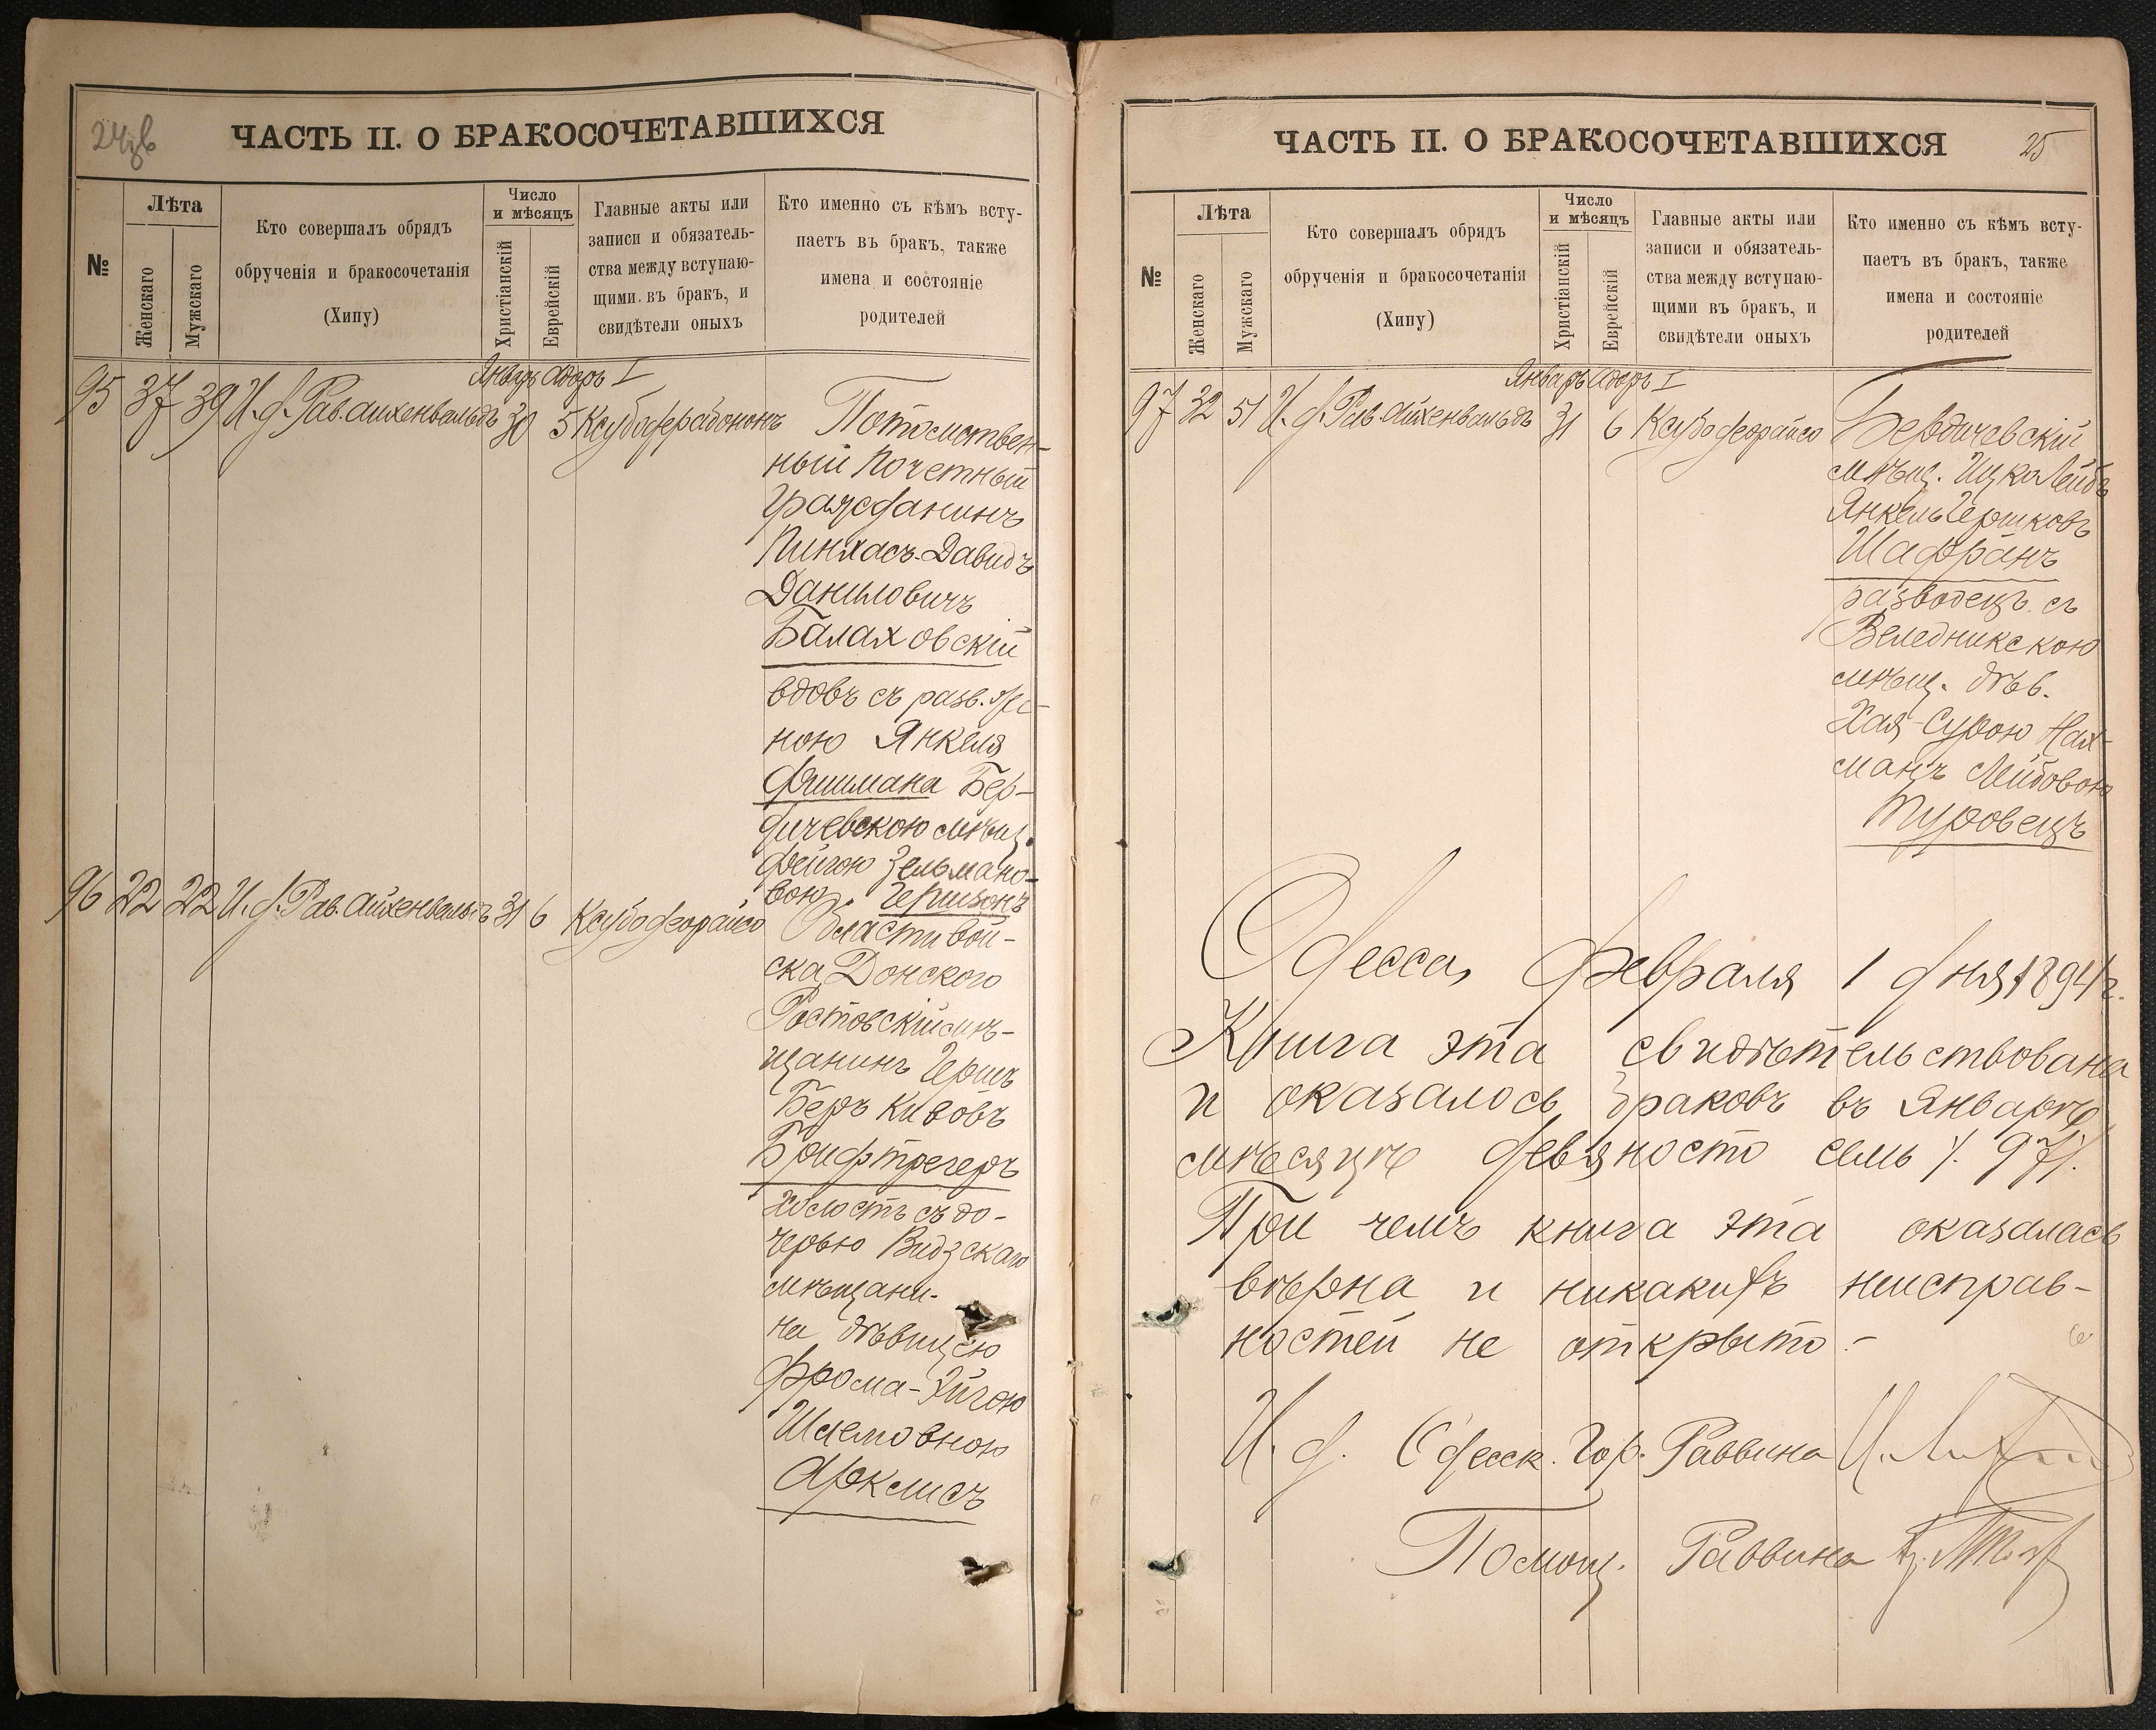 24об
ЧАСТЬ II. О БРАКОСОЧЕТАВШИХСЯ
№
Лѣта
Женскаго
Мужскаго
Кто совершалъ обрядъ
обрученія и бракосочетанія
(Хипу)
Число
и мѣсяцъ
Христіанскій
Еврейскій
Главные акты или
записи и обязатель-
ства между вступаю-
щими въ бракъ, и
свидѣтели оныхъ
Кто именно съ кѣмъ всту-
паетъ въ бракъ, также
имена и состояніе
родителей
Январь Адаръ I
95 37 39 И. д. Рав. Айхенвальдъ 30 5
Потомствен-
ный Почетный
гражданинъ
Пинхасъ-Давидъ
Даниловичъ
Балаховскій
вдовъ съ разв. же-
ною Янкеля
Фишмана Бер-
дичевскою мѣщ.
Фейгою Зельмано-
вою Гершзонъ
96 22 22 И. д. Рав. Айхенвальдъ 31 6 Ксубо деорайсо
Области вой-
ска Донского
Ростовскій мѣ-
щанинъ Гершъ
Беръ Кивовъ
Брифтрегеръ
холостъ съ до-
черью Видзскаго
мѣщани-
на дѣвицею
Фрома-Эйгою
Шлемовною
Арклисъ
ЧАСТЬ II. О БРАКОСОЧЕТАВШИХСЯ
25
№
Лѣта
Женскаго
Мужскаго
Кто совершалъ обрядъ
обрученія и бракосочетанія
(Хипу)
Число
и мѣсяцъ
Христіанскій
Еврейскій
Главные акты или
записи и обязатель-
ства между вступаю-
щими въ бракъ, и
свидѣтели оныхъ
Кто именно съ кѣмъ всту-
паетъ въ бракъ, также
имена и состояніе
родителей
Январь Адаръ I
97 32 51 И. д. Рав. Айхенвальдъ 31 6 Ксубо деорайсо
Бердичевскій
мѣщ. Ицко Лейбъ
Янкель Гершковъ
Шафранъ
разводецъ съ
Веледникскою
мѣщ. дѣв.
Хая-Сурою Нах-
манъ Лейбовою
Туровецъ
Одесса, Февраля 1 дня 1894 г.
Книга эта свидѣтельствована
и оказалось браковъ въ Январѣ
мѣсяцѣ девяносто семь /. 97/.
При чемъ книга эта оказалась
вѣрна и никакихъ неисправ-
ностей не открыто.-
И. д. Одесск. Гор. Раввина
Помощ. Раввина